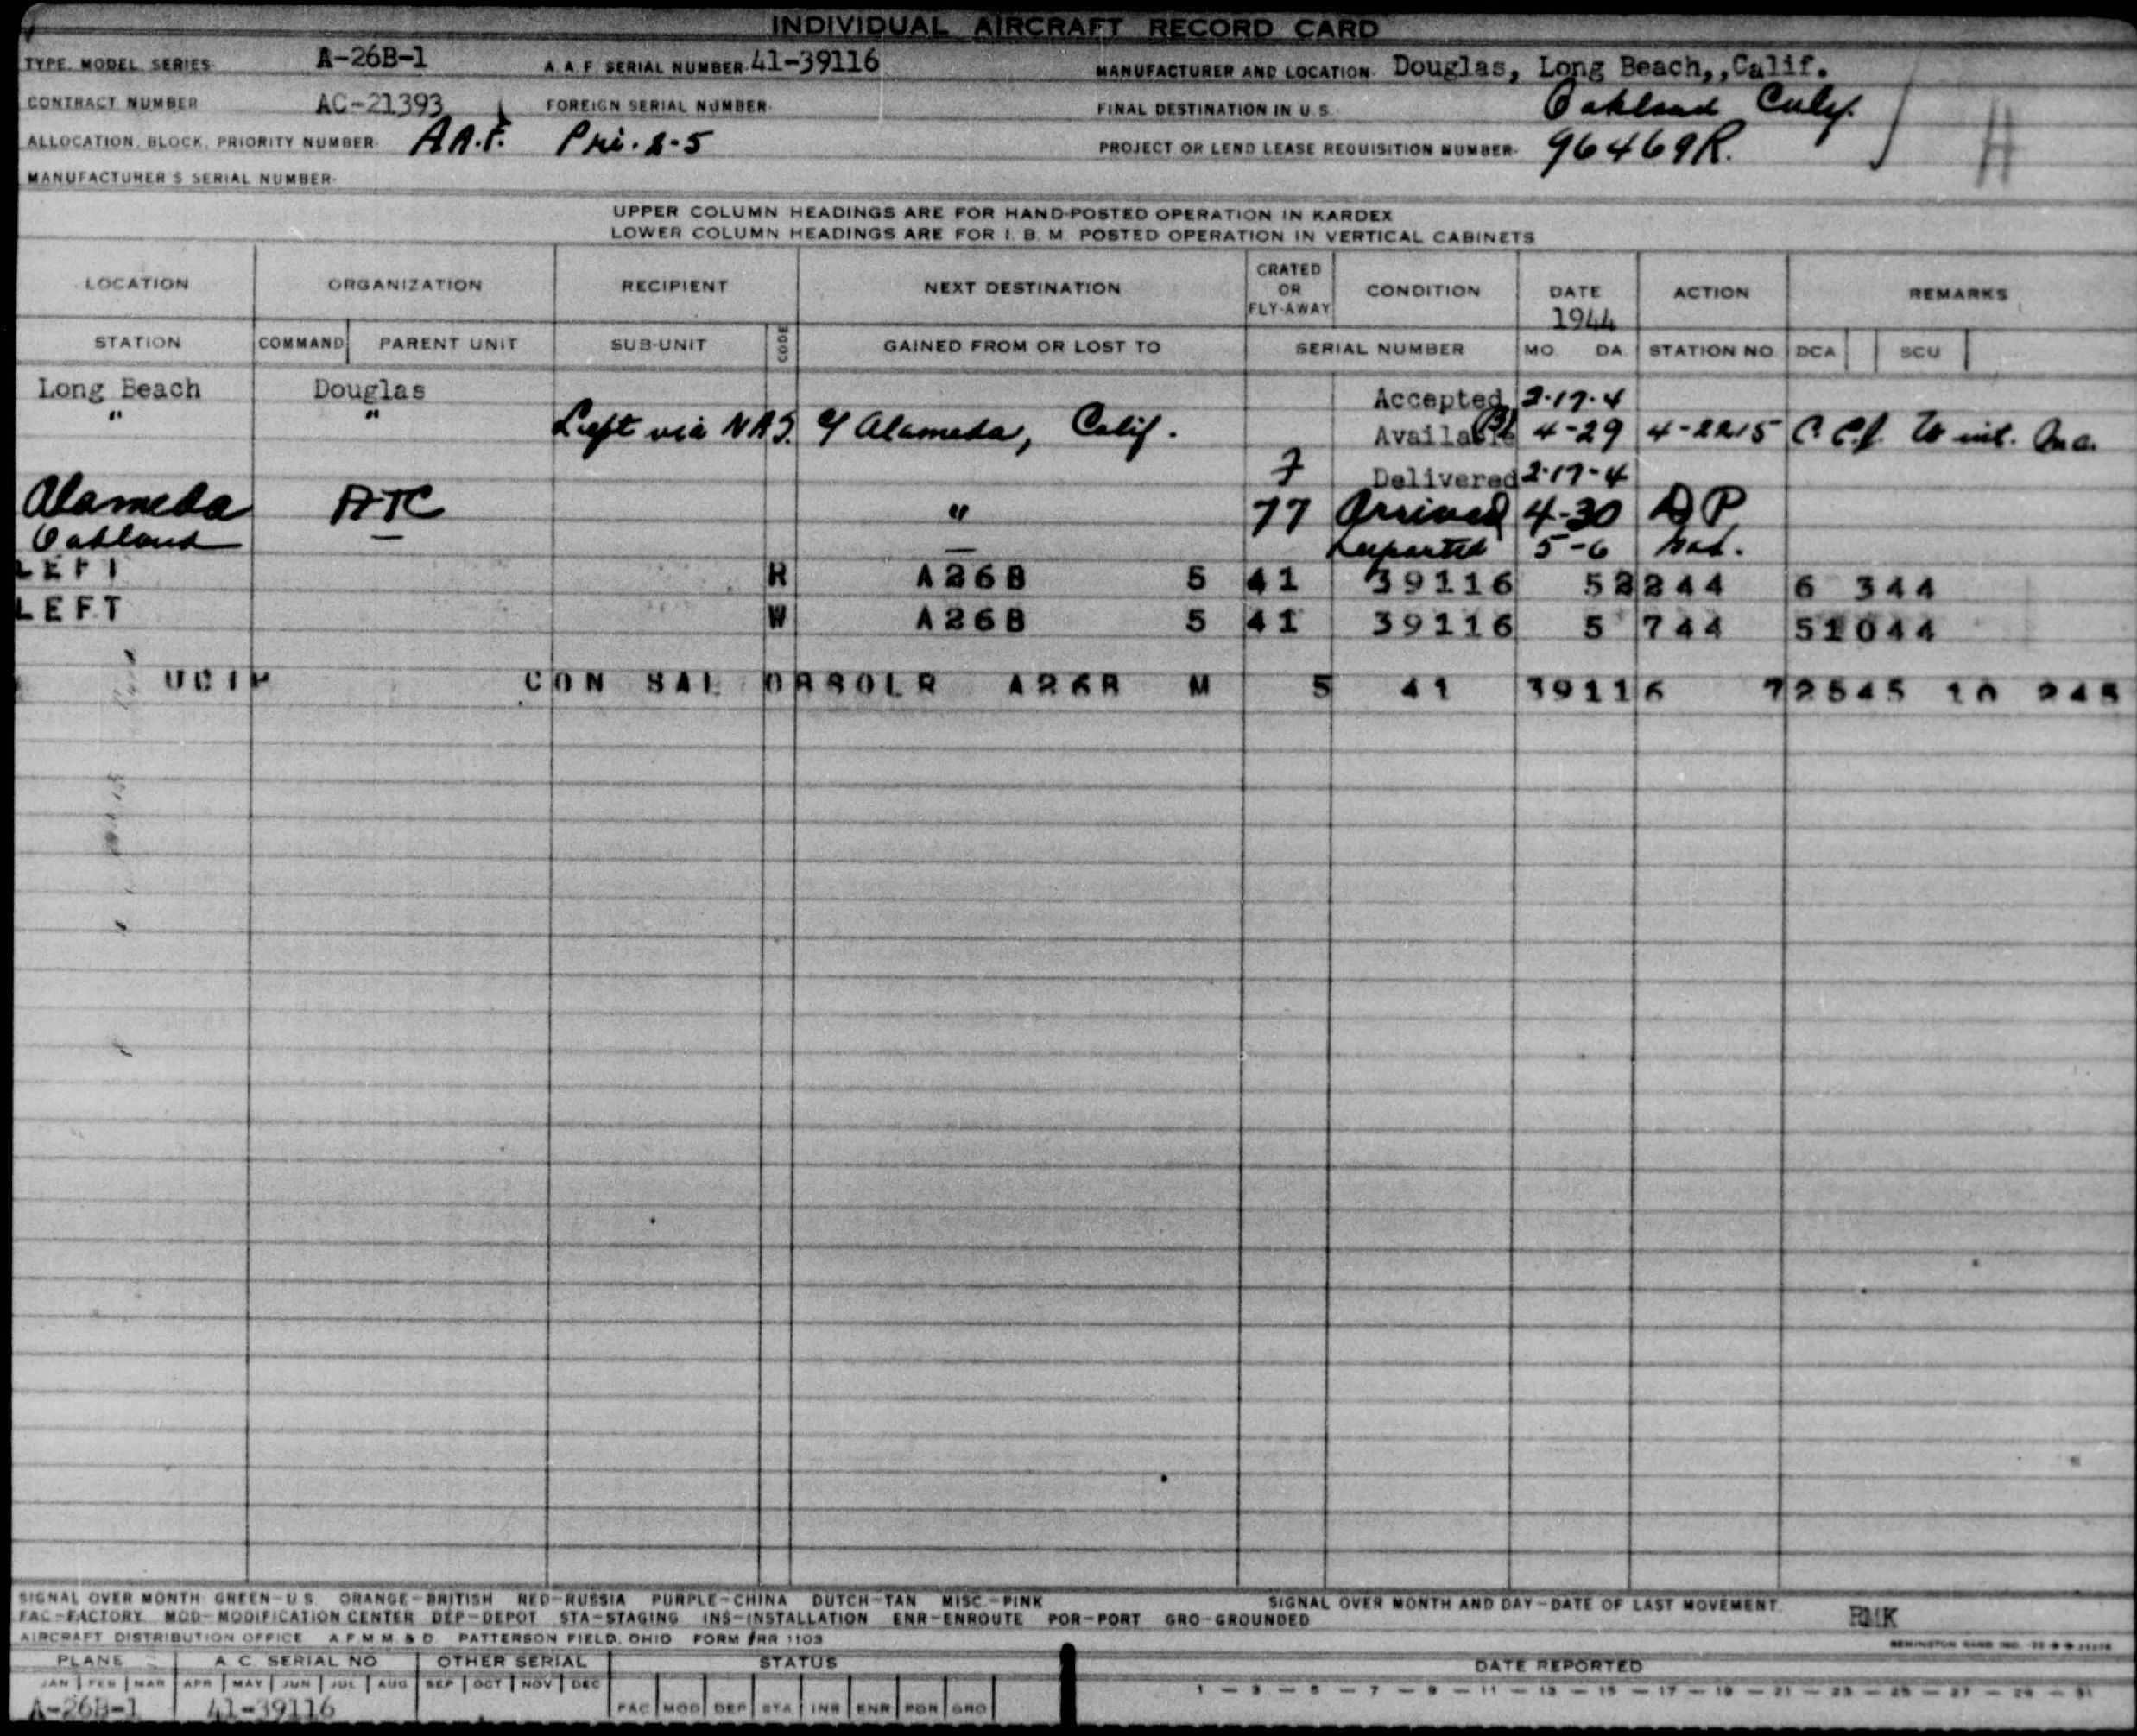 INDIVIDUAL AIRCRAFT RECORD CARD
TYPE, MODEL, SERIES A-26B-1 A.A.F. SERIAL NUMBER 41-39116 MANUFACTURER AND LOCATION Douglas, Long Beach,,Calif.
CONTRACT NUMBER AC-21393 FOREIGN SERIAL NUMBER FINAL DESTINATION IN U.S. Oakland Calif.
ALLOCATION, BLOCK, PRIORITY NUMBER A.A.F. Pri. 2-5 PROJECT OR LEND LEASE REQUISITION NUMBER 96469R. H
MANUFACTURER'S SERIAL NUMBER
UPPER COLUMN HEADINGS ARE FOR HAND-POSTED OPERATION IN KARDEX
LOWER COLUMN HEADINGS ARE FOR I. B. M. POSTED OPERATION IN VERTICAL CABINETS
LOCATION ORGANIZATION RECIPIENT NEXT DESTINATION CRATED OR FLY-AWAY CONDITION DATE 1944 ACTION REMARKS
STATION COMMAND PARENT UNIT SUB-UNIT CODE GAINED FROM OR LOST TO SERIAL NUMBER MO. DA. STATION NO. DCA SCU
Long Beach Douglas Accepted 2-17-4
" " Left via NAS. Alameda, Calif. Available 4-29 4-2215
7 Delivered 2-17-4
Alameda ATC " 77 Arrived 4-30 DP
Oakland — — Departed 5-6
LEFT R A26B 5 41 39116 52244 6 344
LEFT W A26B 5 41 39116 5 744 51044
CON SAL A26B M 5 41 39116 72545 10 245
SIGNAL OVER MONTH: GREEN-U.S. ORANGE-BRITISH RED-RUSSIA PURPLE-CHINA DUTCH-TAN MISC.-PINK SIGNAL OVER MONTH AND DAY-DATE OF LAST MOVEMENT
FAC-FACTORY MOD-MODIFICATION CENTER DEP-DEPOT STA-STAGING INS-INSTALLATION ENR-ENROUTE POR-PORT GRO-GROUNDED RMK
AIRCRAFT DISTRIBUTION OFFICE A.F.M.M.&D. PATTERSON FIELD, OHIO FORM #RR 1103
PLANE A C. SERIAL NO OTHER SERIAL STATUS DATE REPORTED
JAN FEB MAR APR MAY JUN JUL AUG SEP OCT NOV DEC 1 — 3 — 5 — 7 — 9 — 11 — 13 — 15 — 17 — 19 — 21 — 23 — 25 — 27 — 29 — 31
A-26B-1 41-39116 FAC MOD DEP STA INS ENR POR GRO